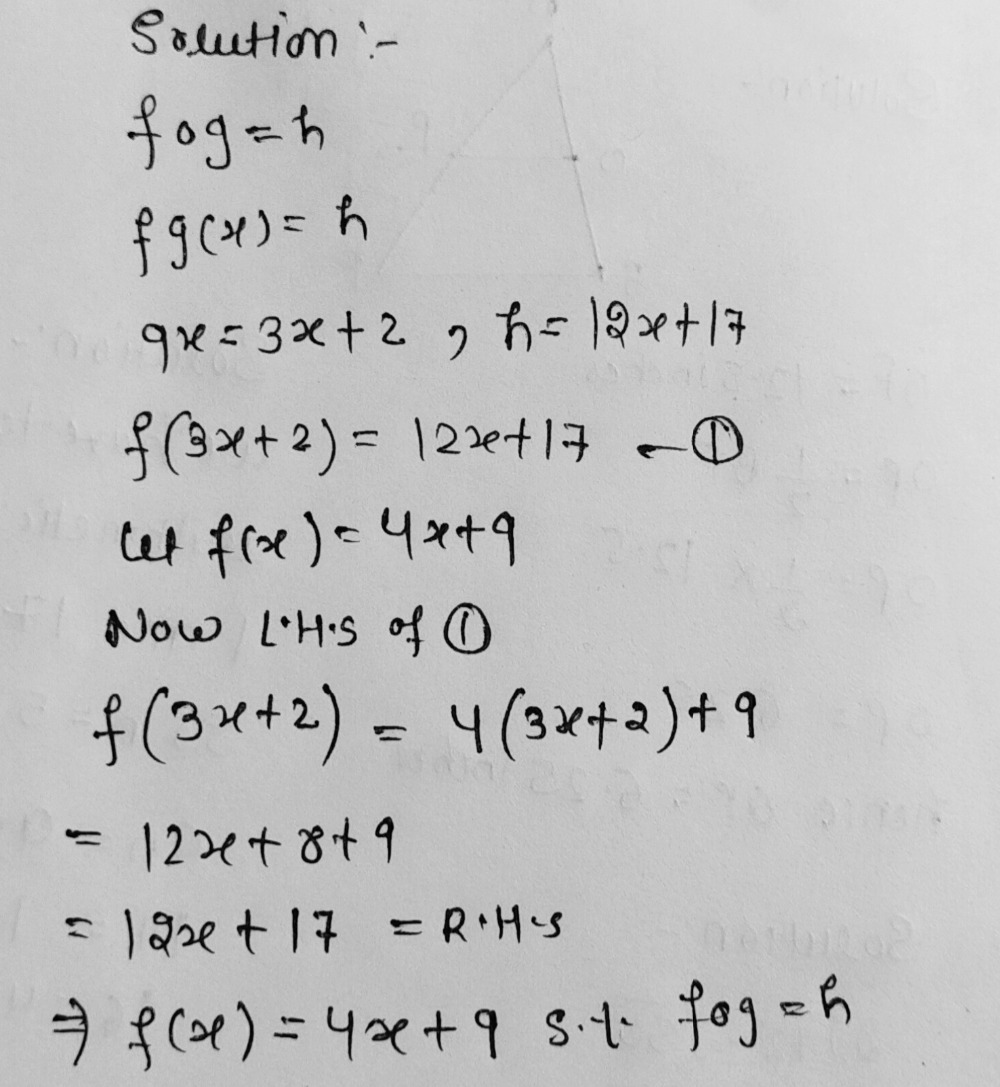 Solution :-
fog = h
fg(x) = h
gx = 3x + 2 , h = 12x + 17
f(3x + 2) = 12x + 17 - ①
let f(x) = 4x + 9
Now L.H.S of ①
f(3x + 2) = 4(3x + 2) + 9
= 12x + 8 + 9
= 12x + 17 = R.H.S
⇒ f(x) = 4x + 9 s.t. fog = h